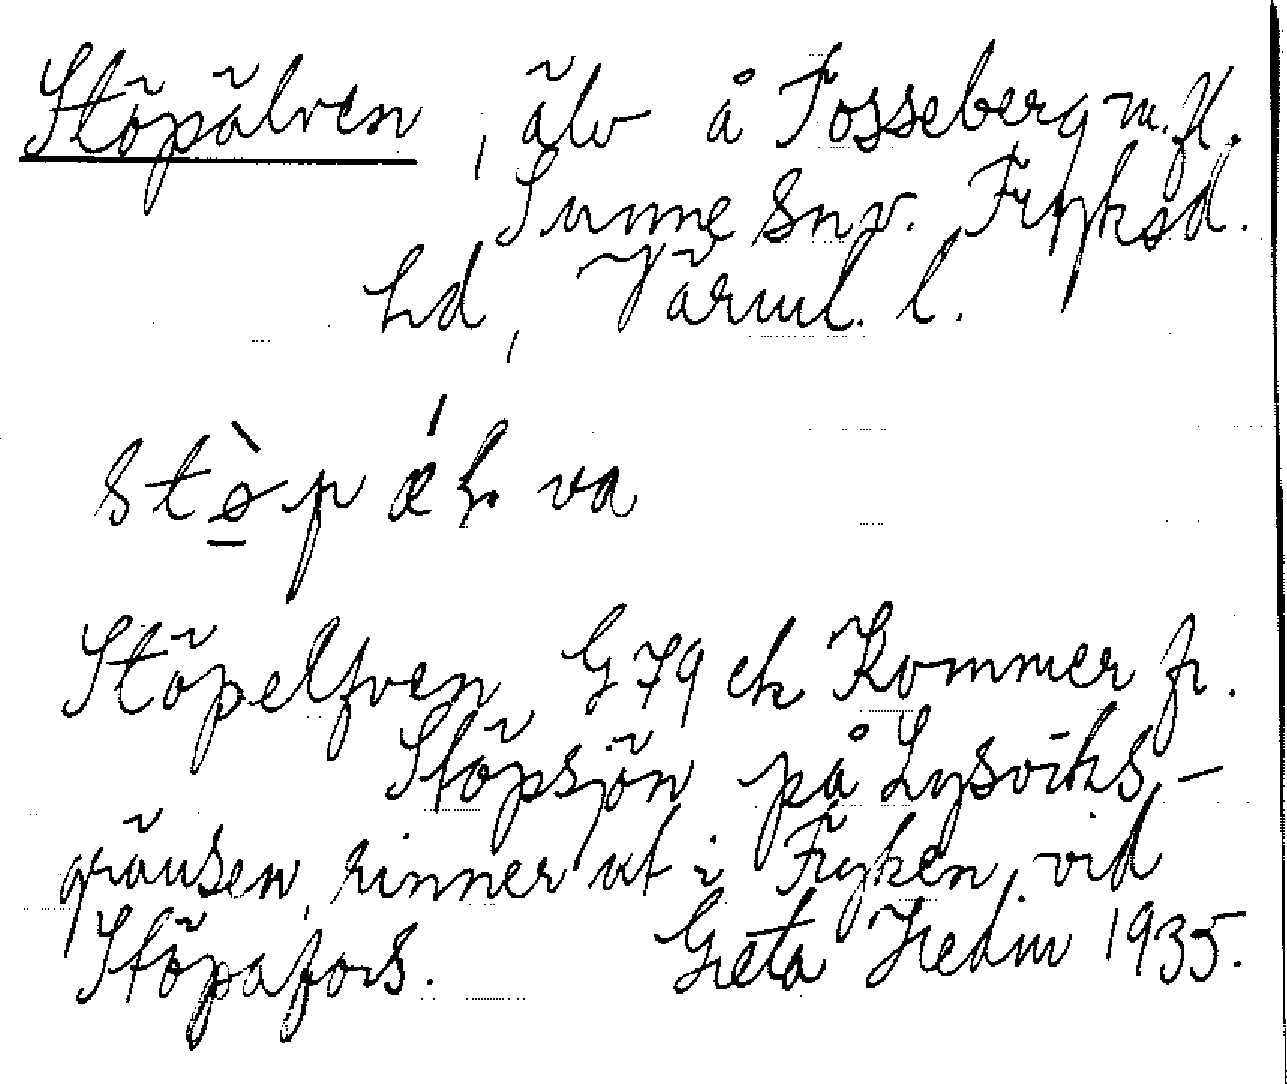 Stöpälven, älv å Fosseberg m. fl.
Sunne snv. Fryksd.
hd, Värml. l.
stø̲̀pǽl̥va
Stöpelfven G79 ek Kommer fr.
Stöpsjön på Lysviks-
gränsen, rinner ut i Fryken vid
Stöpafors. Greta Hedin 1935.